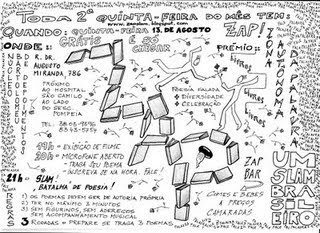 TODA 2ª QUINTA-FEIRA DO MÊS TEM:
www.zapslam.blogspot.com
QUANDO: QUINTA-FEIRA 13. DE AGOSTO
ZAP!
GRÁTIS É SÓ CHEGAR
ONDE:
NÚCLEO BARTOLOMEU DE DEPOIMENTOS
R. DR. AUGUSTO MIRANDA, 786
PRÓXIMO
AO HOSPITAL
SÃO CAMILO
AO LADO
DO SESC
POMPEIA
PRÊMIO:
Livros
Livros
Livros
Livros
ZONA AUTÔNOMA DA PALAVRA
POESIA FALADA
+ DIVERSIDADE
+ CELEBRAÇÃO
ZAP!
19h – EXIBIÇÃO DE FILME
20h – MICROFONE ABERTO
TRAGA SEU POEMA
INSCREVA-SE NA HORA. FALE!
21h – SLAM!
BATALHA DE POESIA!
ZAP BAR
COMES E BEBES
A PREÇOS
CAMARADAS
UM SLAM BRASILEIRO
REGRAS
1) OS POEMAS DEVEM SER DE AUTORIA PRÓPRIA
2) TER NO MÁXIMO 3 MINUTOS
3) SEM FIGURINOS, SEM ADEREÇOS
SEM ACOMPANHAMENTO MUSICAL
3 RODADAS = PREPARE SE TRAGA 3 POEMAS